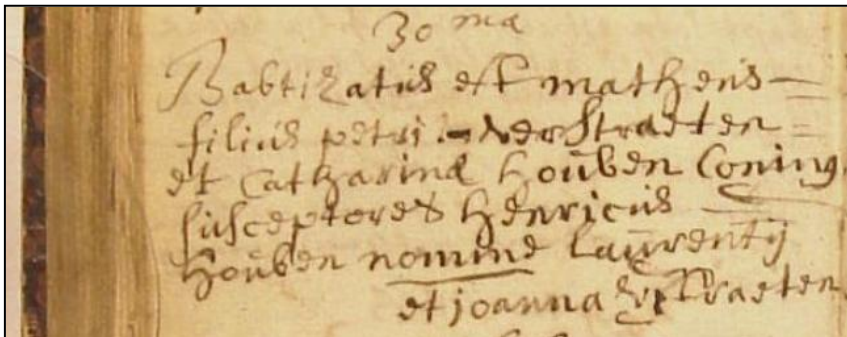 30 ma
Babtizatus est matheus
filius petri verstraeten
et Catharinæ Houben Coning
susceptores Henricus
Houben nomine Laurentij
et joanna verstraeten